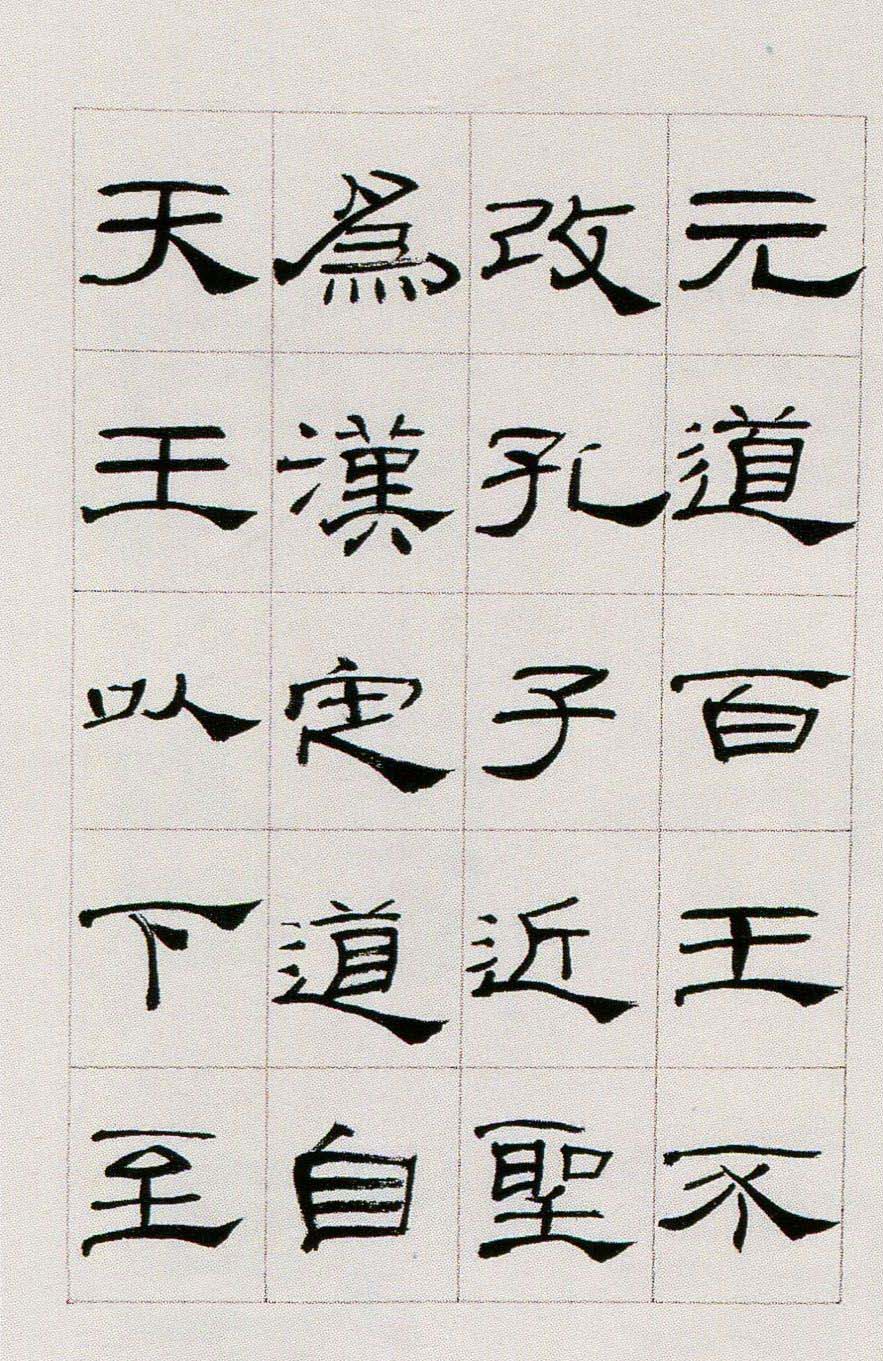 元道百王不
改孔子近聖
爲漢定道自
天王以下至